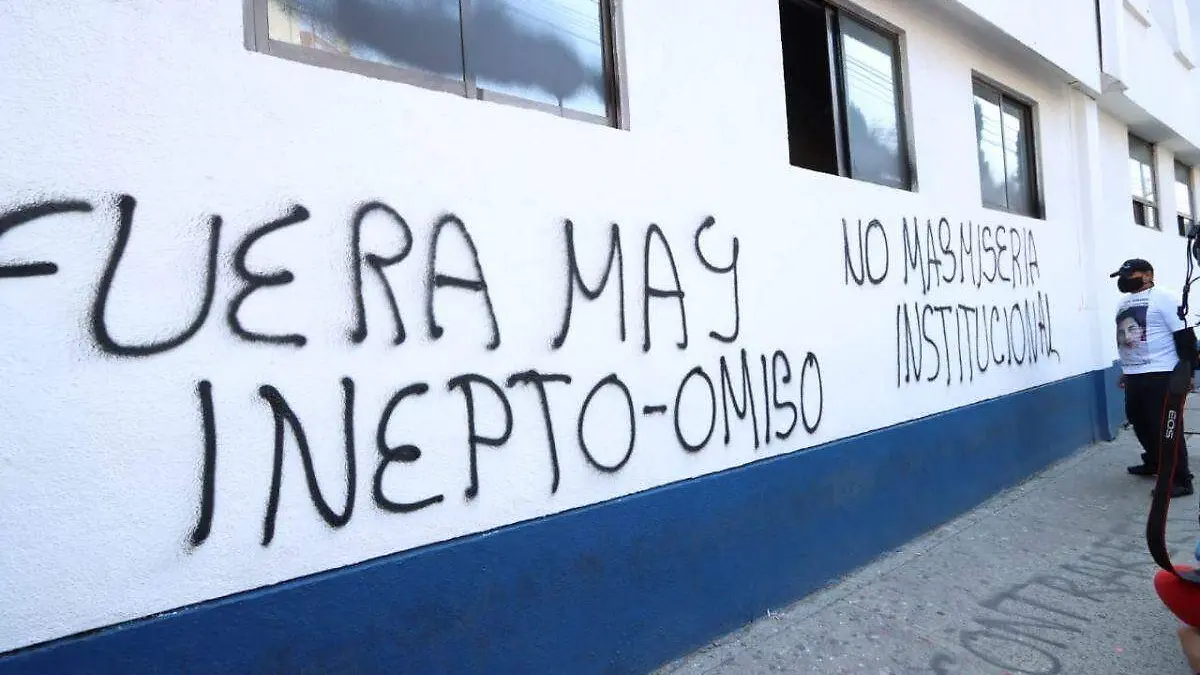 FUERA MAY
INEPTO-OMISO
NO MAS MISERIA
INSTITUCIONAL
EOS